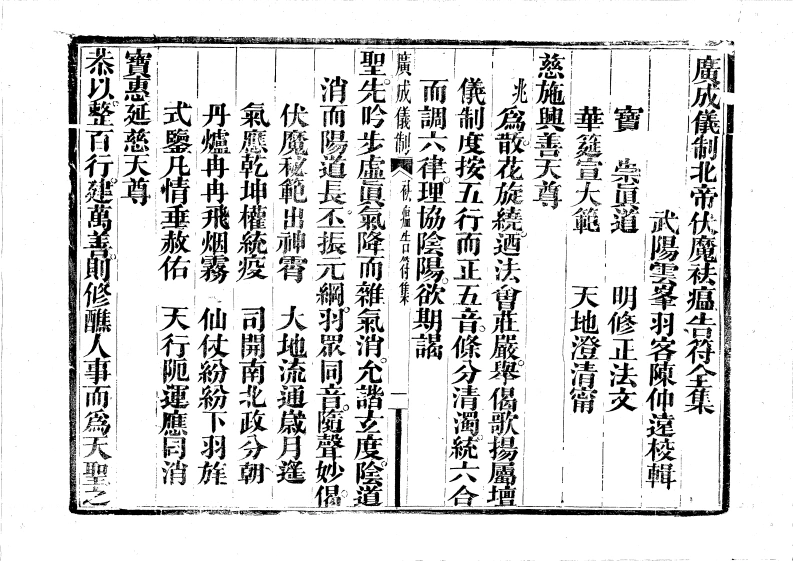 廣成儀制北帝伏魔祛瘟告符全集
武陽雲峯羽客陳仲遠校輯
寶 崇眞道 明修正法文
華筵宣大範 天地澄清甯
慈施興善天尊
兆爲散花旋繞迺法會莊嚴舉偈歌揚屬壇
儀制度按五行而正五音條分清濁統六合
而調六律理協陰陽欲期謁
廣成儀制 祛瘟告符集 一
聖先吟步虛眞氣降而雜氣消允諧玄度陰道
消而陽道長丕振元綱羽眾同音隨聲妙偈
伏魔秘範出神霄 大地流通歲月遙
氣應乾坤權統疫 司開南北政分朝
丹爐冉冉飛烟霧 仙仗紛紛下羽旌
式鑒凡情垂赦佑 天行阨運應同消
寶惠延慈天尊
恭以整百行建萬善則修醮人事而爲天聖之